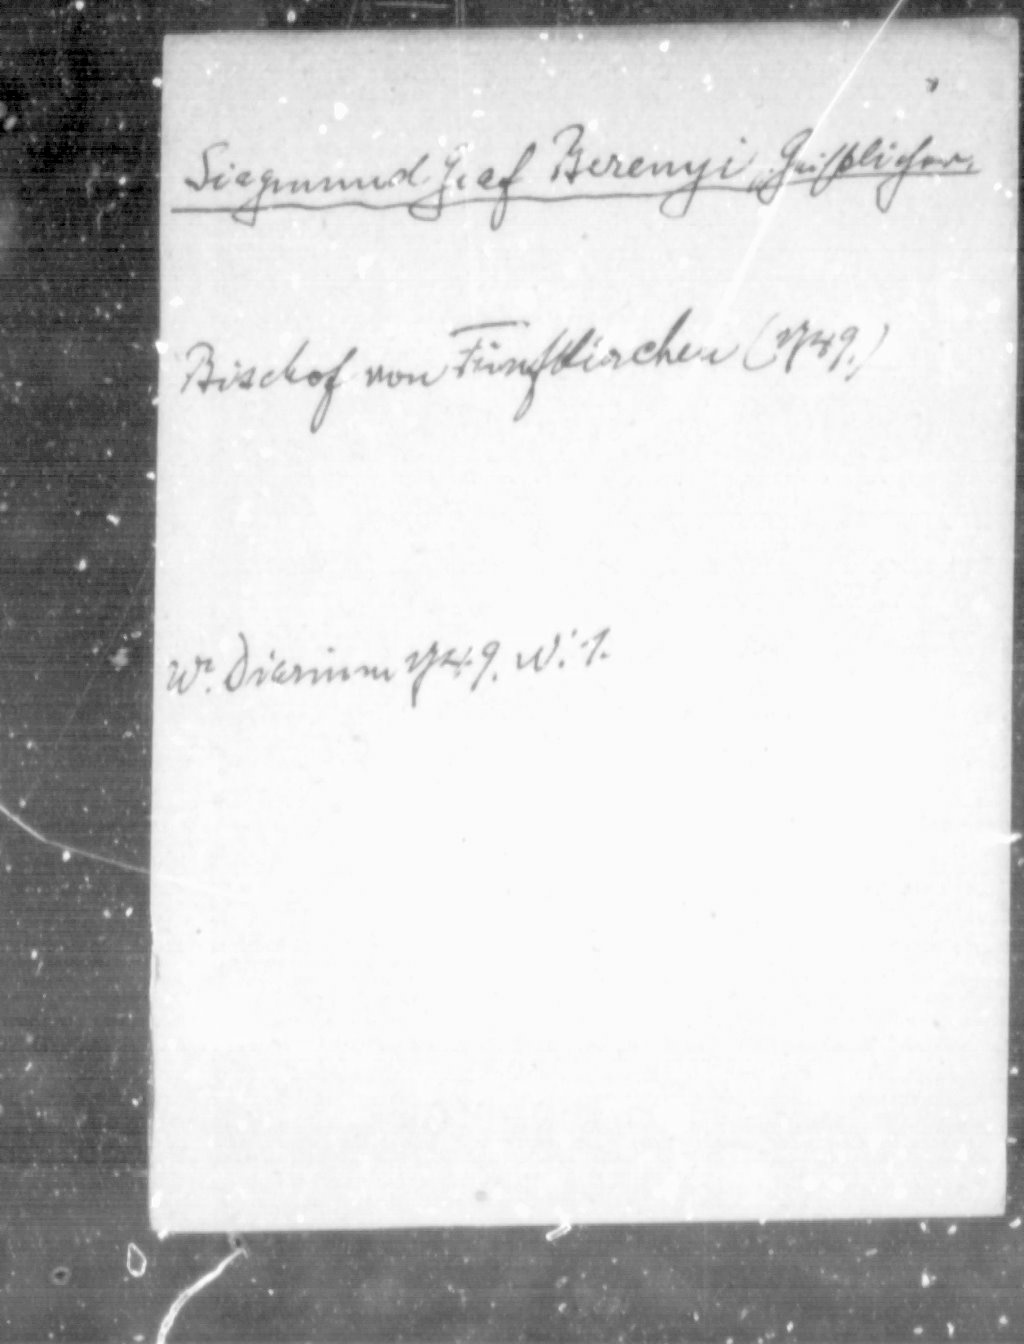 Siegmund Graf Berenyi, Geistlicher.
Bischof von Fünfkirchen (1749.)
Wr. Diarium 1749. N: 1.